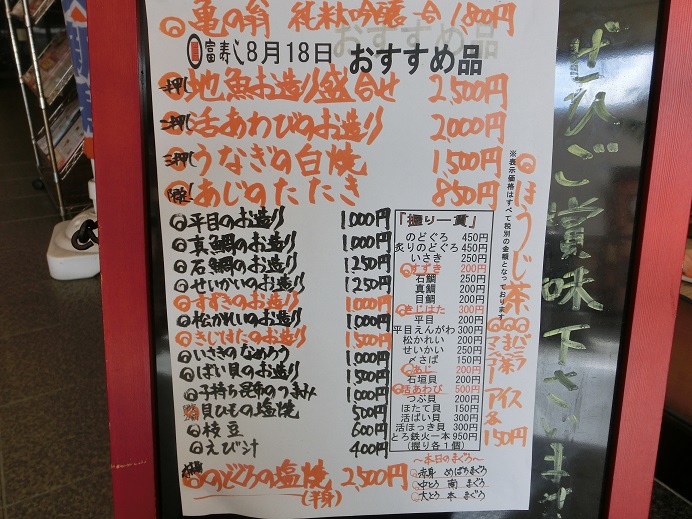 亀の翁 純米大吟醸 一合 1,800円
富寿し8月18日 おすすめ品
一押し 地魚お造り盛合せ 2,500円
二押し 活あわびのお造り 2000円
三押し うなぎの白焼 1,500円
あじのたたき 850円
平目のお造り 1,000円
真鯛のお造り 1,000円
石鯛のお造り 1250円
せいかいのお造り 1,250円
すずきのお造り 1,000円
松かれいのお造り 1,000円
きじはたのお造り 1,500円
いさきのなめろう 1,000円
ばい貝のお造り 1,000円
子持ち昆布のつまみ 1,000円
貝ひもの塩焼 500円
枝豆 600円
えび汁 400円
のどぐろの塩焼 2,500円
(半身)
「握り一貫」
のどぐろ 450円
炙りのどぐろ 450円
いさき 250円
すずき 200円
石鯛 250円
真鯛 200円
目鯛 200円
きじはた 300円
平目 200円
平目えんがわ 300円
松かれい 200円
せいかい 250円
〆さば 150円
あじ 200円
石垣貝 200円
活あわび 500円
つぶ貝 200円
ほたて貝 150円
活ばい貝 300円
活ほっき貝 300円
とろ鉄火一本 950円
(握り各1個)
～本日のまぐろ～
赤身 めばちまぐろ
中とろ 南まぐろ
大とろ 本まぐろ
※表示価格はすべて税別の金額となっております
ほうじ茶
バニラ
まっ茶
マンゴー
アイス
各
150円
ぜひご賞味下さいます